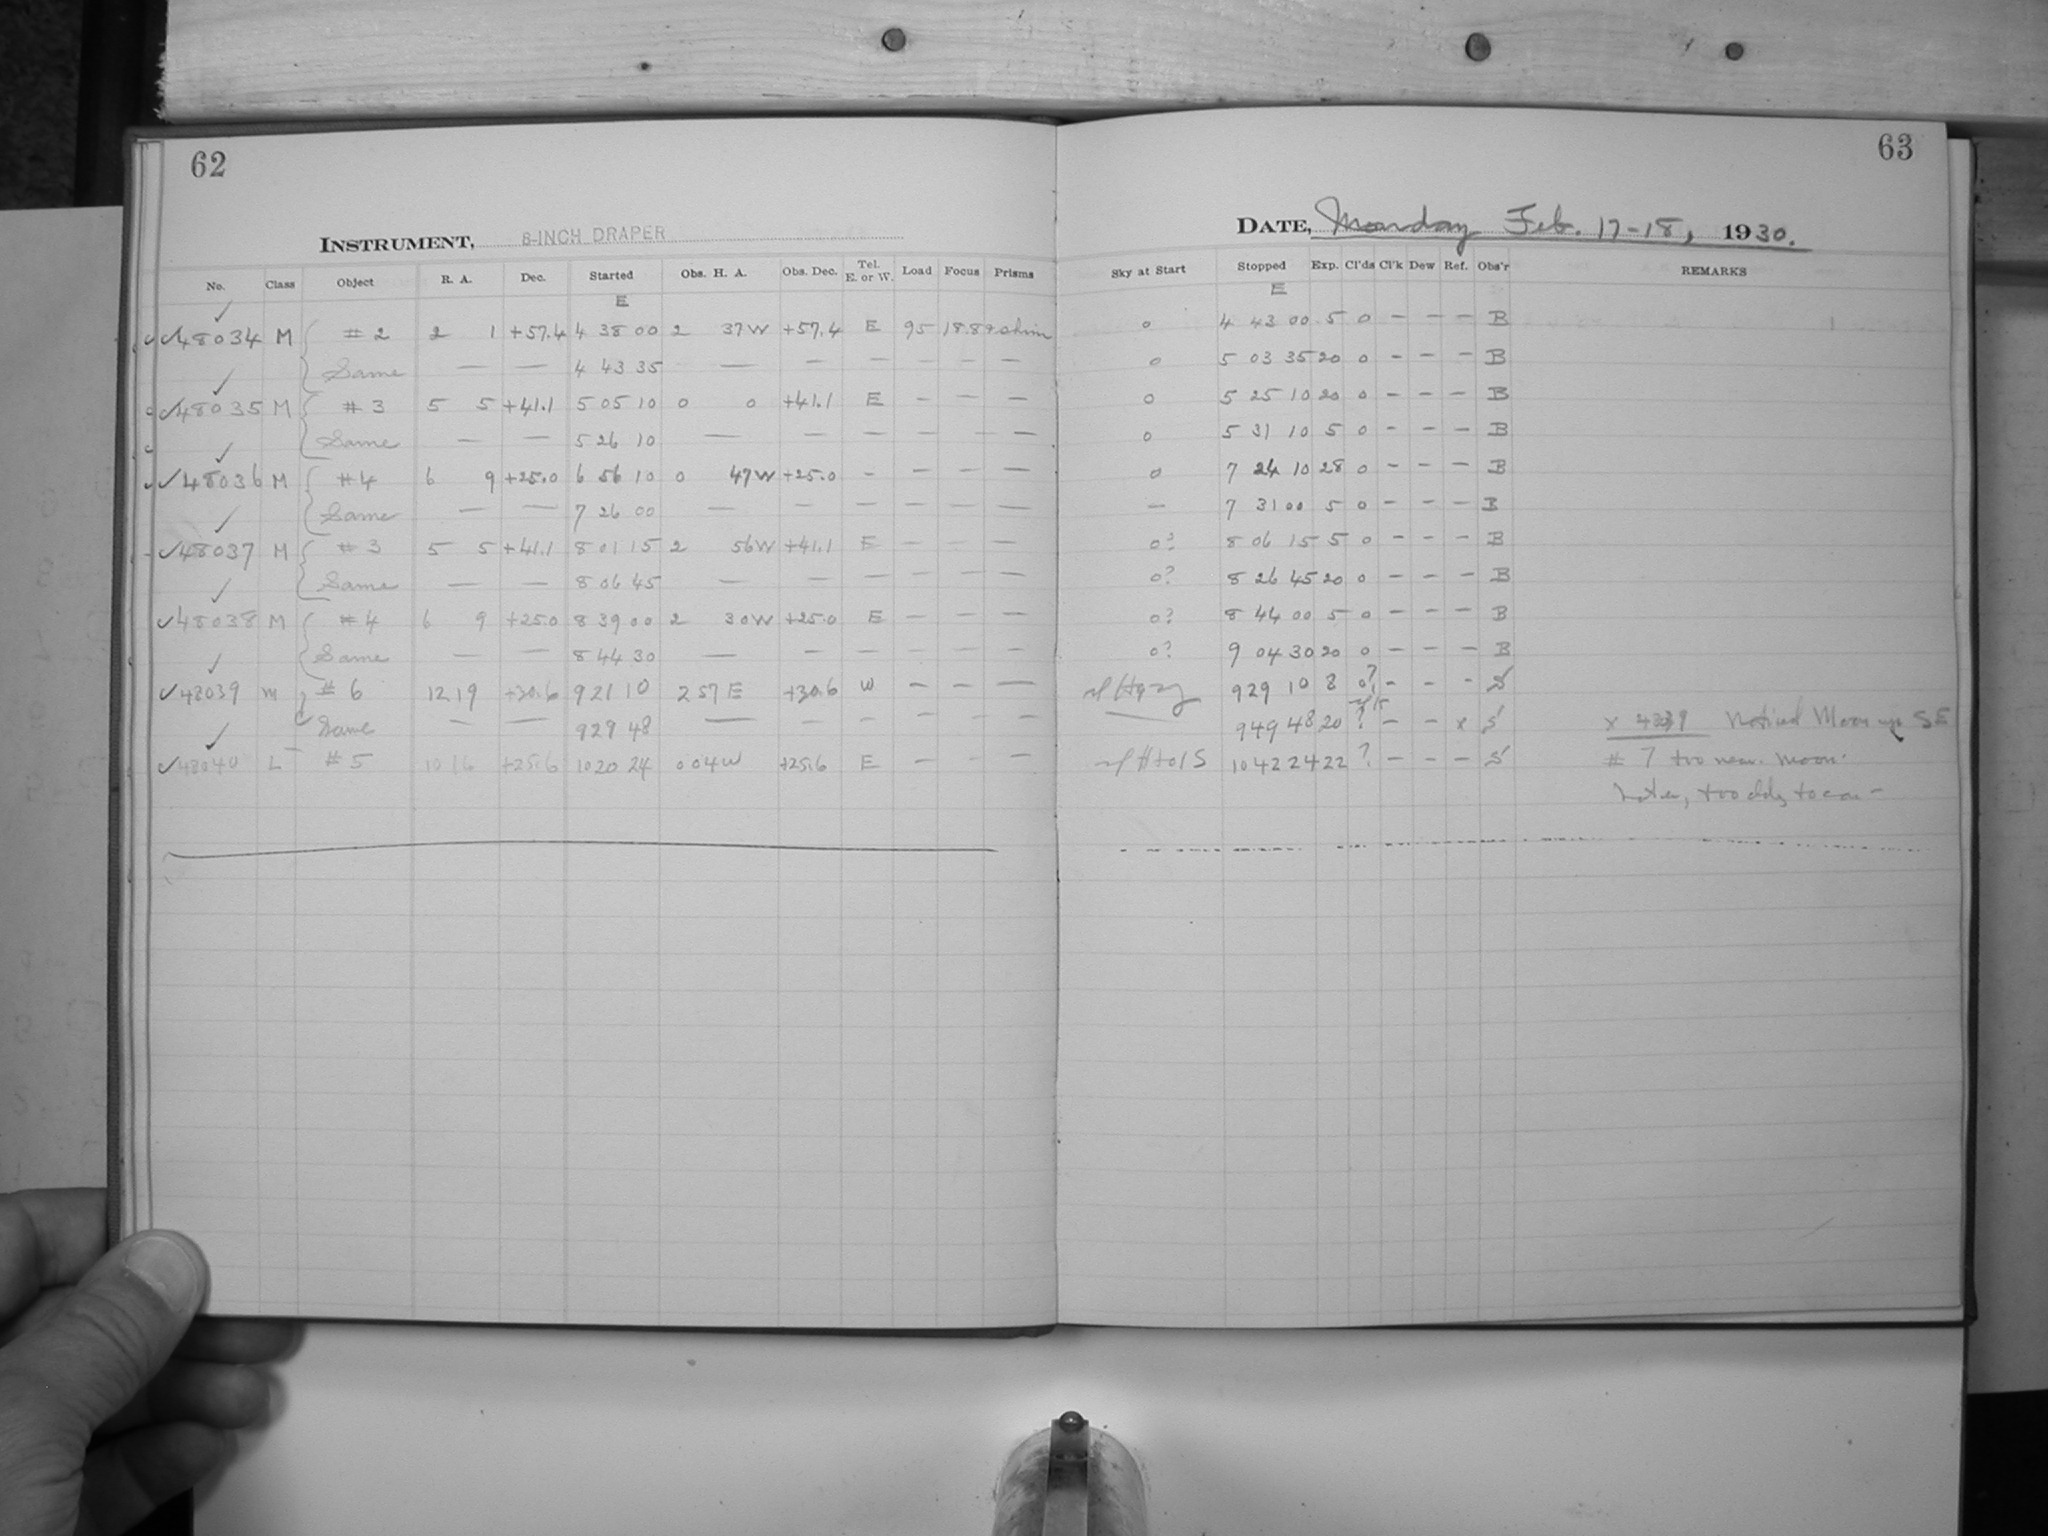 62
INSTRUMENT, 8-INCH DRAPER
No. Class Object R. A. Dec. Started Obs. H. A. Obs. Dec. Tel. E. or W. Load Focus Prisms
E
✓48034 M #2 2 1 +57.4 4 38 00 2 37W +57.4 E 95 18.8
Same — — 4 43 35 — — — — — —
✓48035 M #3 5 5 +41.1 5 05 10 0 0 +41.1 E — — —
Same — — 5 26 10 — — — — — —
✓48036 M #4 6 9 +25.0 6 56 10 0 47W +25.0 - — — —
Same — — 7 26 00 — — — — — —
✓48037 M #3 5 5 +41.1 8 01 15 2 56W +41.1 E — — —
Same — — 8 06 45 — — — — — —
✓48038 M #4 6 9 +25.0 8 39 00 2 30W +25.0 E — — —
Same — — 8 44 30 — — — — — —
✓48039 M #6 12 19 +30.6 9 21 10 2 57 E +30.6 W — — —
Same — — 9 29 48 — — — — — —
✓48040 L #5 10 16 +25.6 10 20 24 0 04W +25.6 E — — —
63
DATE, Monday Feb. 17-18, 1930.
Sky at Start Stopped Exp. Cl'ds Cl'k Dew Ref. Obs'r REMARKS
E
0 4 43 00 5 0 — — — B
0 5 03 35 20 0 — — — B
0 5 25 10 20 0 — — — B
0 5 31 10 5 0 — — — B
0 7 24 10 28 0 — — — B
— 7 31 00 5 0 — — — B
0? 8 06 15 5 0 — — — B
0? 8 26 45 20 0 — — — B
0? 8 44 00 5 0 — — — B
0? 9 04 30 20 0 — — — B
Hazy 9 29 10 8 0? — — - S
9 49 48 20 ? — — x S x Noticed Moon up SE
10 42 24 22 ? — — — S # 7 too near moon.